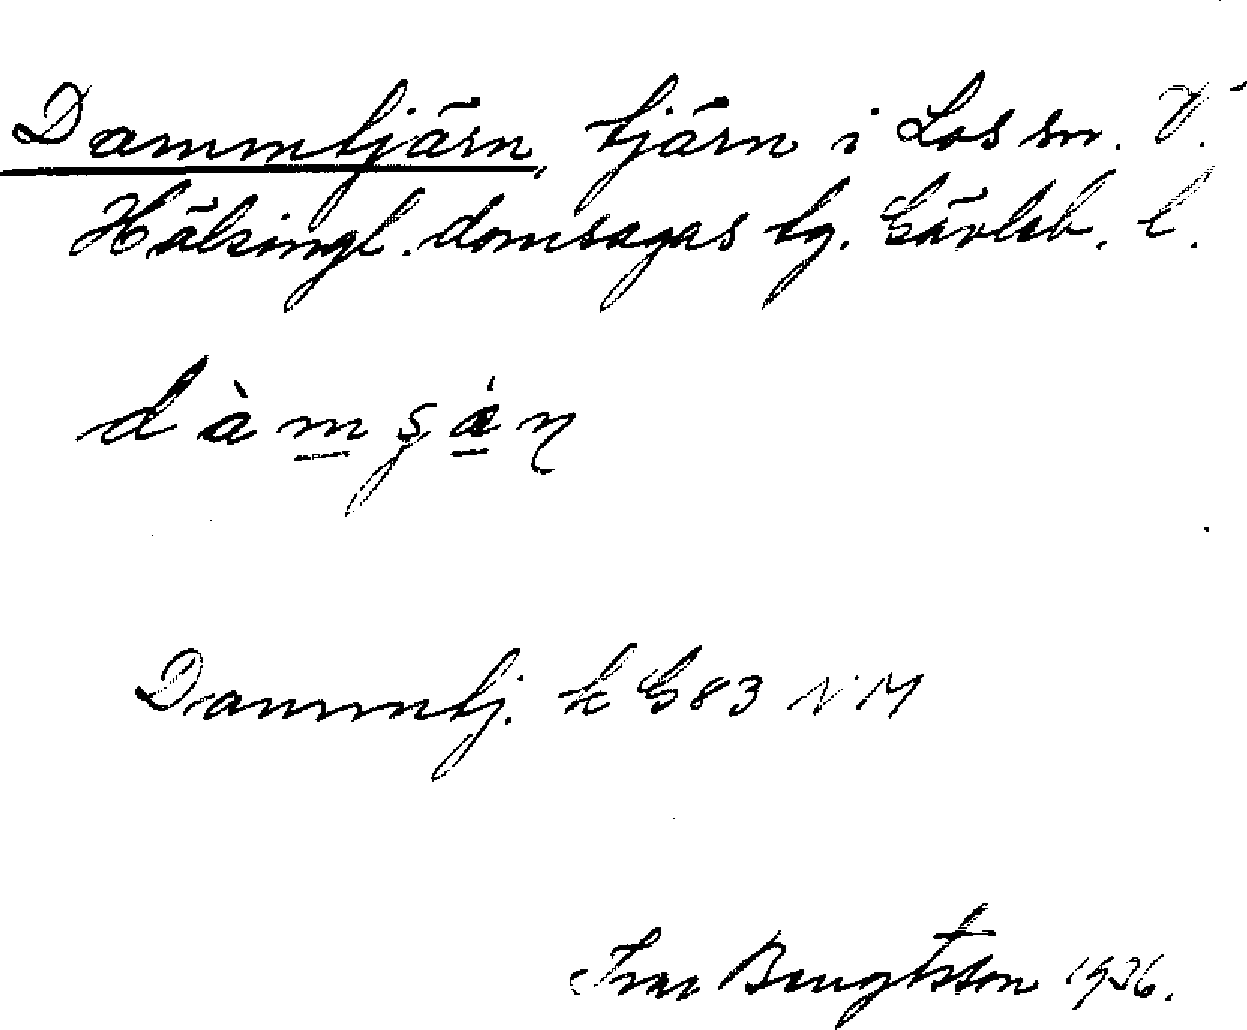 Dammtjärn, tjärn i Los sn. V.
Hälsingl. domsagas tg. Gävleb. l.
dàmʂá̱ɳ
Dammtj. k G83 NM
Bengtsson 1936.